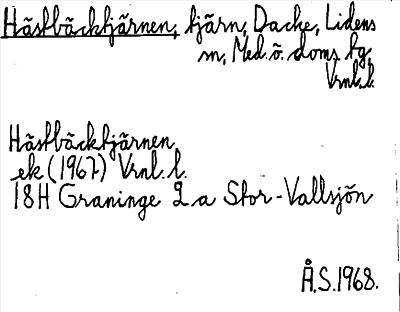 Hästbäcktjärnen, tjärn, Dacke, Lidens
sn, Med. ö. doms hg,
Vrnl. l.
Hästbäcktjärnen
ek (1967) Vrnl. l.
18H Graninge 2 a Stor-Vallsjön
Å.S. 1968.